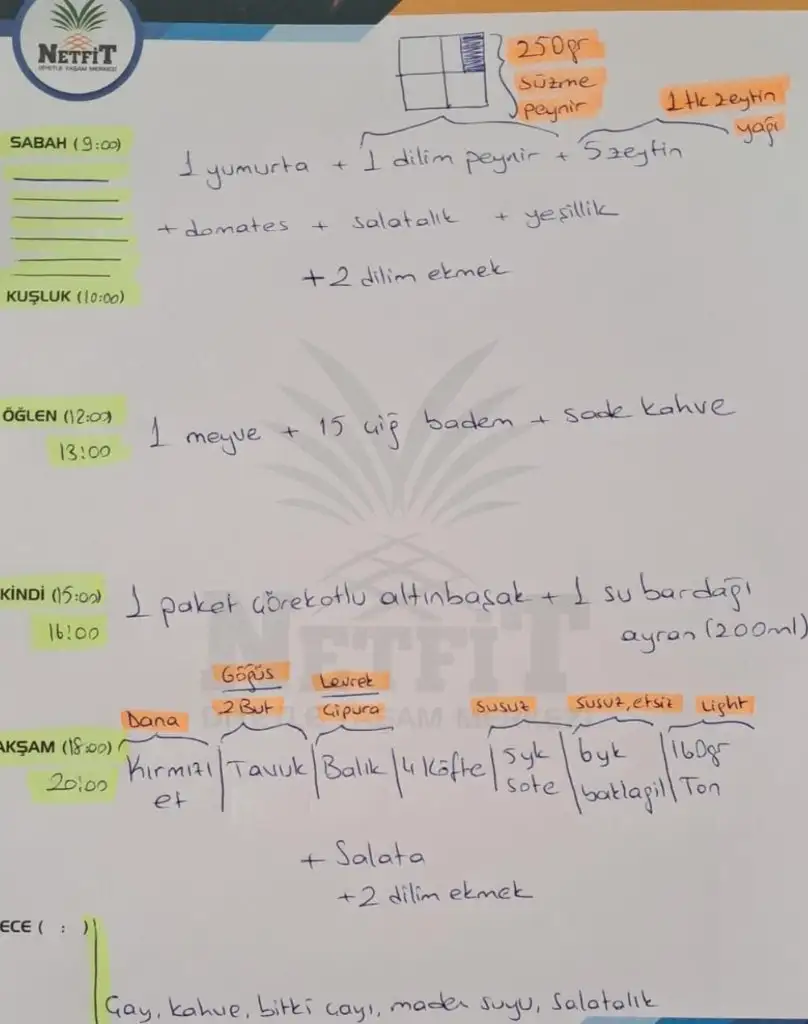 NETFİT
DİYETLE YAŞAM MERKEZİ
250gr
süzme
peynir
1 tk zeytin
yağı
SABAH (9:00)
1 yumurta + 1 dilim peynir + 5 zeytin
+ domates + salatalık + yeşillik
+ 2 dilim ekmek
KUŞLUK (10:00)
ÖĞLEN (12:00)
13:00
1 meyve + 15 çiğ badem + sade kahve
KİNDİ (15:00)
16:00
1 paket çörekotlu altınbaşak + 1 su bardağı
ayran (200ml)
NETFİT
DİYETLE YAŞAM MERKEZİ
Göğüs
Levrek
Dana
2 But
Çipura
susuz
susuz, etsiz
Light
AKŞAM (18:00)
20:00
Kırmızı et | Tavuk | Balık | 4 Köfte | 5yk sote | 6yk baklagil | 160gr Ton
+ Salata
+ 2 dilim ekmek
ECE ( : )
Çay, kahve, bitki çayı, maden suyu, salatalık